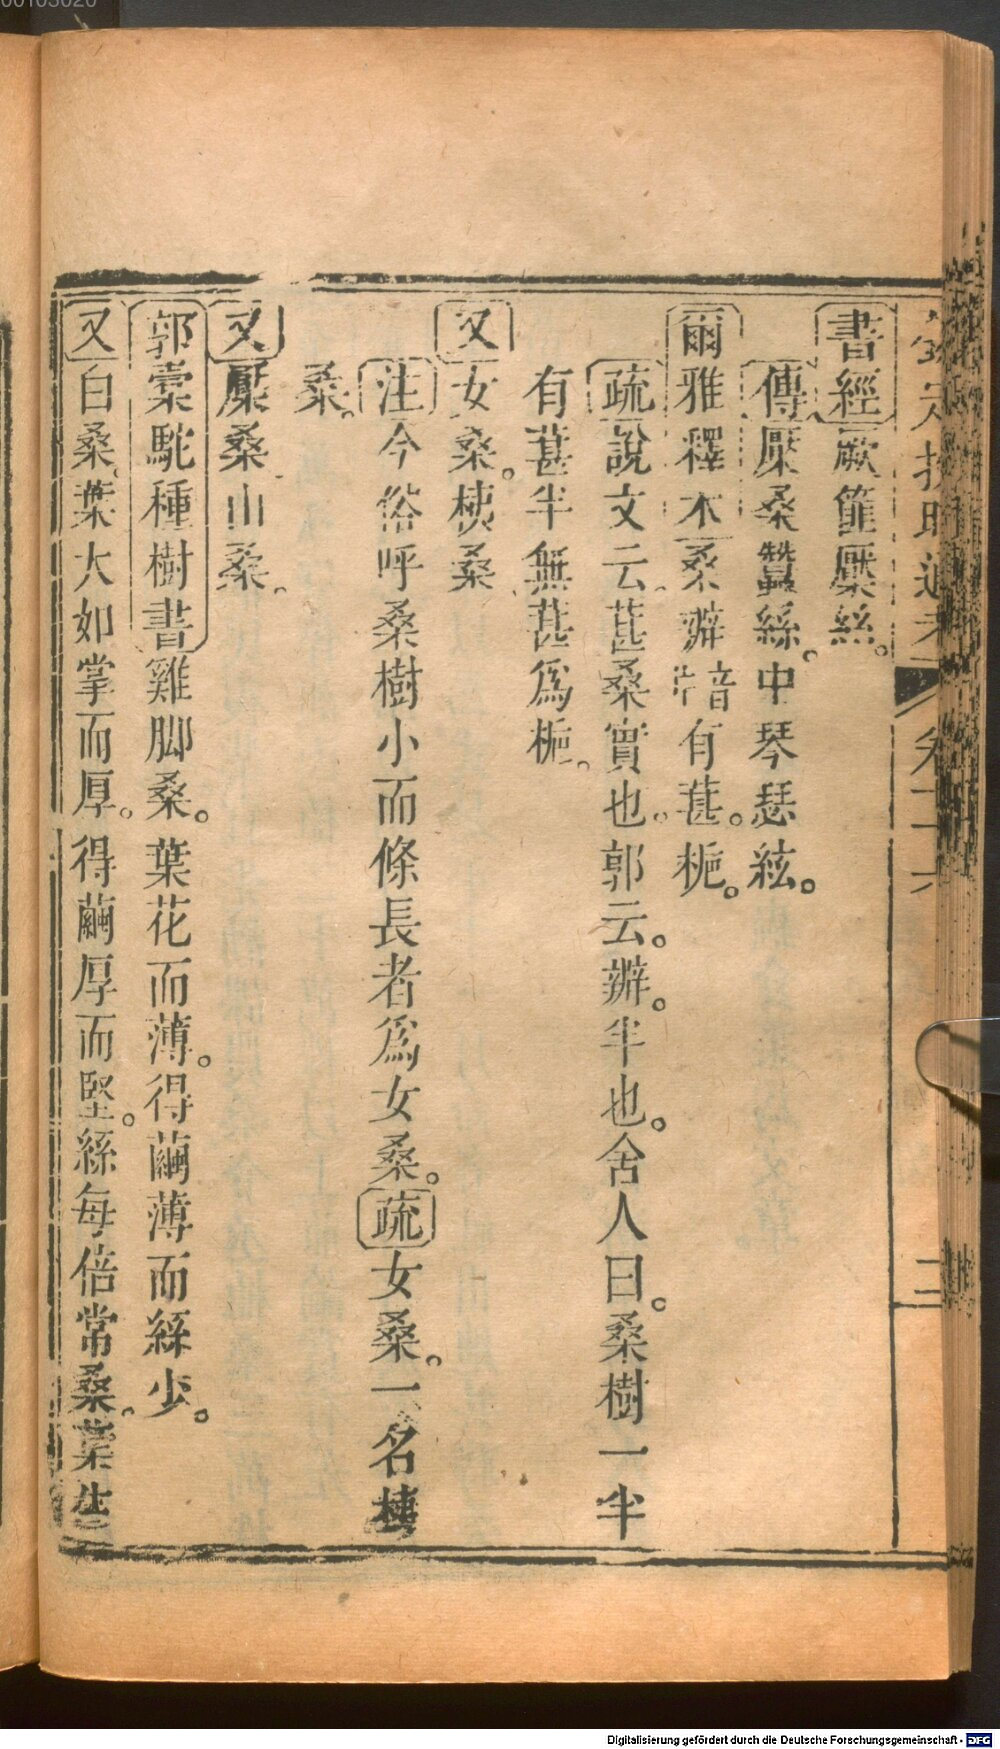 書經厥篚檿絲。
傳檿桑蠶絲。中琴瑟絃。
爾雅釋木桑辦音片有葚。梔。
疏說文云。葚桑實也。郭云。辦。半也。舍人曰。桑樹一半
有葚半無葚爲梔。
又女桑。桋桑
注今俗呼桑樹小而條長者爲女桑。疏女桑。一名桋
桑。
又檿桑山桑。
郭橐駝種樹書雞脚桑。葉花而薄。得繭薄而絲少。
又白桑。葉大如掌而厚。得繭厚而堅。絲每倍常桑。葉生
Digitalisierung gefördert durch die Deutsche Forschungsgemeinschaft - DFG